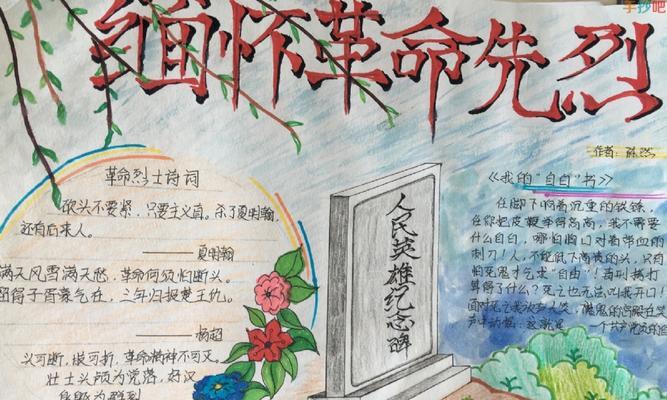 手抄吧
缅怀革命先烈
革命烈士诗词
砍头不要紧,只要主义真。杀了夏明翰,
还有后来人。
——夏明翰
满天风雪满天愁,革命何须怕断头。
留得子胥豪气在,三年归报楚王仇。
——杨超
头可断,肢可折,革命精神不可灭。
壮士头颅为党落,好汉
身躯为群裂
人民英雄纪念碑
作者:陈然
《我的"自白"书》
任脚下响着沉重的铁镣,
任你把皮鞭举得高高,我不需要
什么自白,哪怕胸口对着带血的
刺刀!人,不能低下高贵的头,只有
怕死鬼才乞求"自由"!毒刑拷打
算得了什么?死亡也无法叫我开口!
面对死亡我放声大笑,魔鬼的宫殿在笑
声中动摇;这就是一个共产党员的